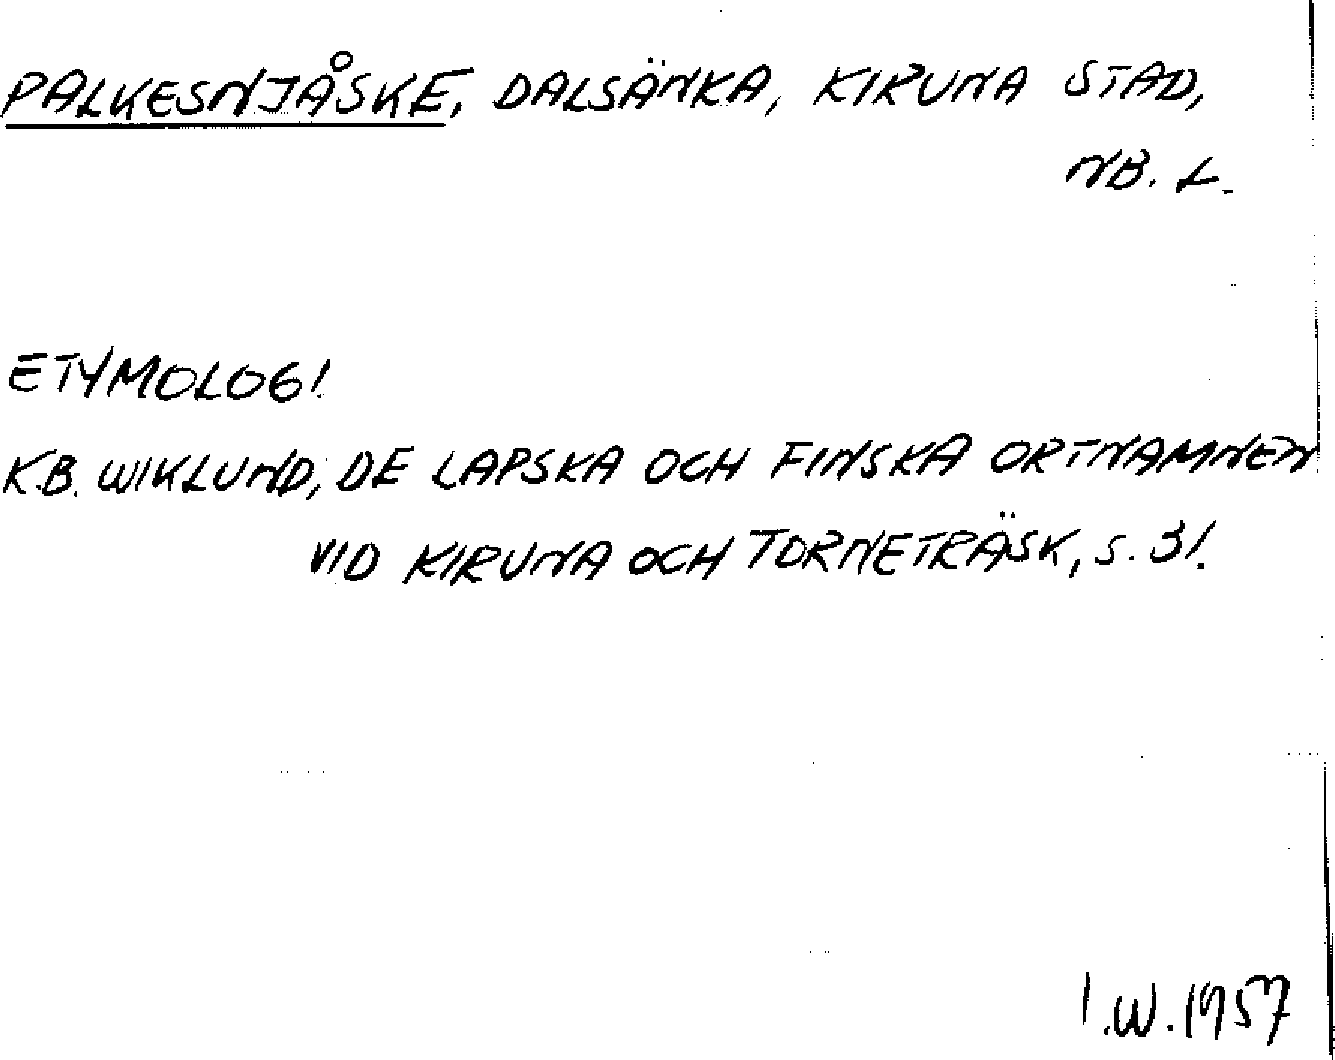 PALKESNJÅSKE, DALSÄNKA, KIRUNA STAD,
NB. L.
ETYMOLOGI.
K.B. WIKLUND, DE LAPSKA OCH FINSKA ORTNAMNEN
VID KIRUNA OCH TORNETRÄSK, S. 31.
I.W. 1957